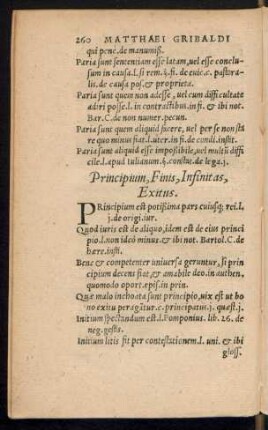 260 MATTHAEI GRIBALDI
qui pene. de manumiß.
Paria sunt sententiam esse latam, uel esse conclu-
sum in causa. l. si rem. §. fi. de euic. c. pastora-
lis. de causa pos. & proprieta.
Paria sunt quem non adesse, uel cum difficultate
adiri posse. l. in contractibus. in fi. & ibi not.
Bar. C. de non numer. pecun.
Paria sunt quem aliquid facere, uel per se non sta
re quo minus fiat. l. iure. in fi. de condi. instit.
Paria sunt aliquid esse impoßibile, uel multū diffi
cile. l. apud iulianum. §. constat. de lega. j.
Principium, Finis, Infinitas,
Exitus.
PRincipium est potißima pars cuiusq; rei. l.
j. de origi. iur.
Quod iuris est de aliquo, idem est de eius princi
pio. l. non ideo minus. & ibi not. Bartol. C. de
hære. insti.
Bene & competenter uniuersa geruntur, si prin
cipium decens fiat, & amabile deo. in authen.
quomodo oport. epis. in prin.
Quæ malo inchoata sunt principio, uix est ut bo
no exitu peragātur. c. principatus. j. quæst. j.
Initium spectandum est. l. Pomponius. lib. 26. de
neg. gestis.
Initium litis fit per contestationem. l. uni. & ibi
gloss.